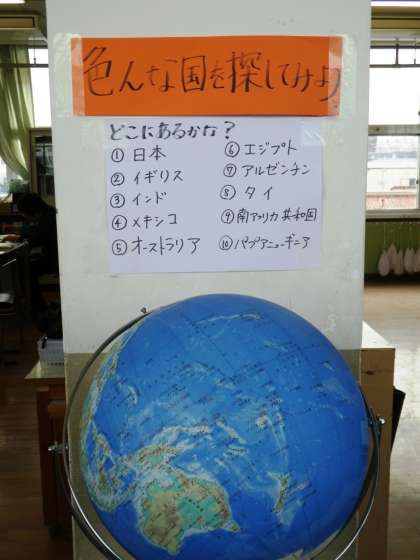 色んな国を探してみよう
どこにあるかな？
① 日本
② イギリス
③ インド
④ メキシコ
⑤ オーストラリア
⑥ エジプト
⑦ アルゼンチン
⑧ タイ
⑨ 南アメリカ共和国
⑩ パプアニューギニア